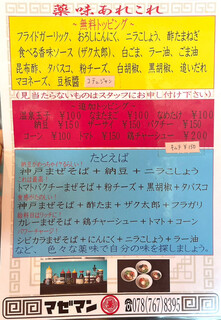 薬味あれこれ
～無料トッピング～
フライドガーリック、おろしにんにく、ニラこしょう、酢たまねぎ
食べる香味ソース(ザタ郎)、白ごま、ラー油、ごま油
昆布酢、タバスコ、粉チーズ、白胡椒、黒胡椒、追いだれ
マヨネーズ、豆板醤 コチュジャン
(見当たらないものはスタッフにお申し付け下さい)
¥100 ¥100 なめたけ ¥100
納豆 ¥150 ¥150
コーン ¥100 トマト ¥150 ¥200
¥150
たとえば
神戸まぜそば＋納豆＋ニラこしょう
トマトバクチーまぜそば＋粉チーズ＋黒胡椒＋タバスコ
神戸まぜそば＋酢たま＋ザタ郎＋フラガ
カレーまぜそば＋鶏チャーシュー＋トマト＋コーン
シビカラまぜそば＋にんにく＋ニラこしょう＋ラー油
など、色々な薬味で自分の味を探しましょう。
マゼマン ☎078(767)8395